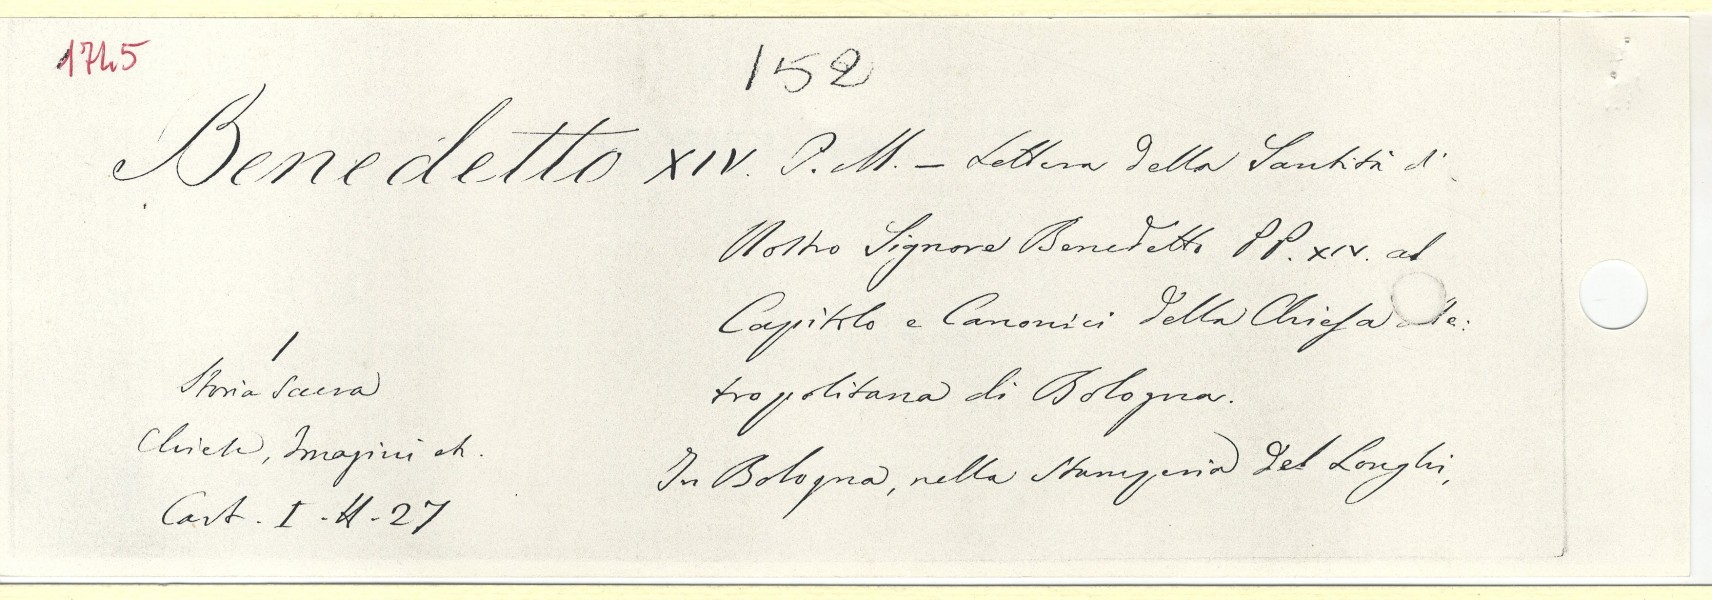 1745
152
Benedetto XIV. P. M. - Lettera della Santità di
Nostro Signore Benedetto PP. XIV. al
Capitolo e Canonici della Chiesa Me:
tropolitana di Bologna.
In Bologna, nella Stamperia del Longhi,
1
Storia sacra
Chiese, Imagini etc.
Cart. I. H. 27